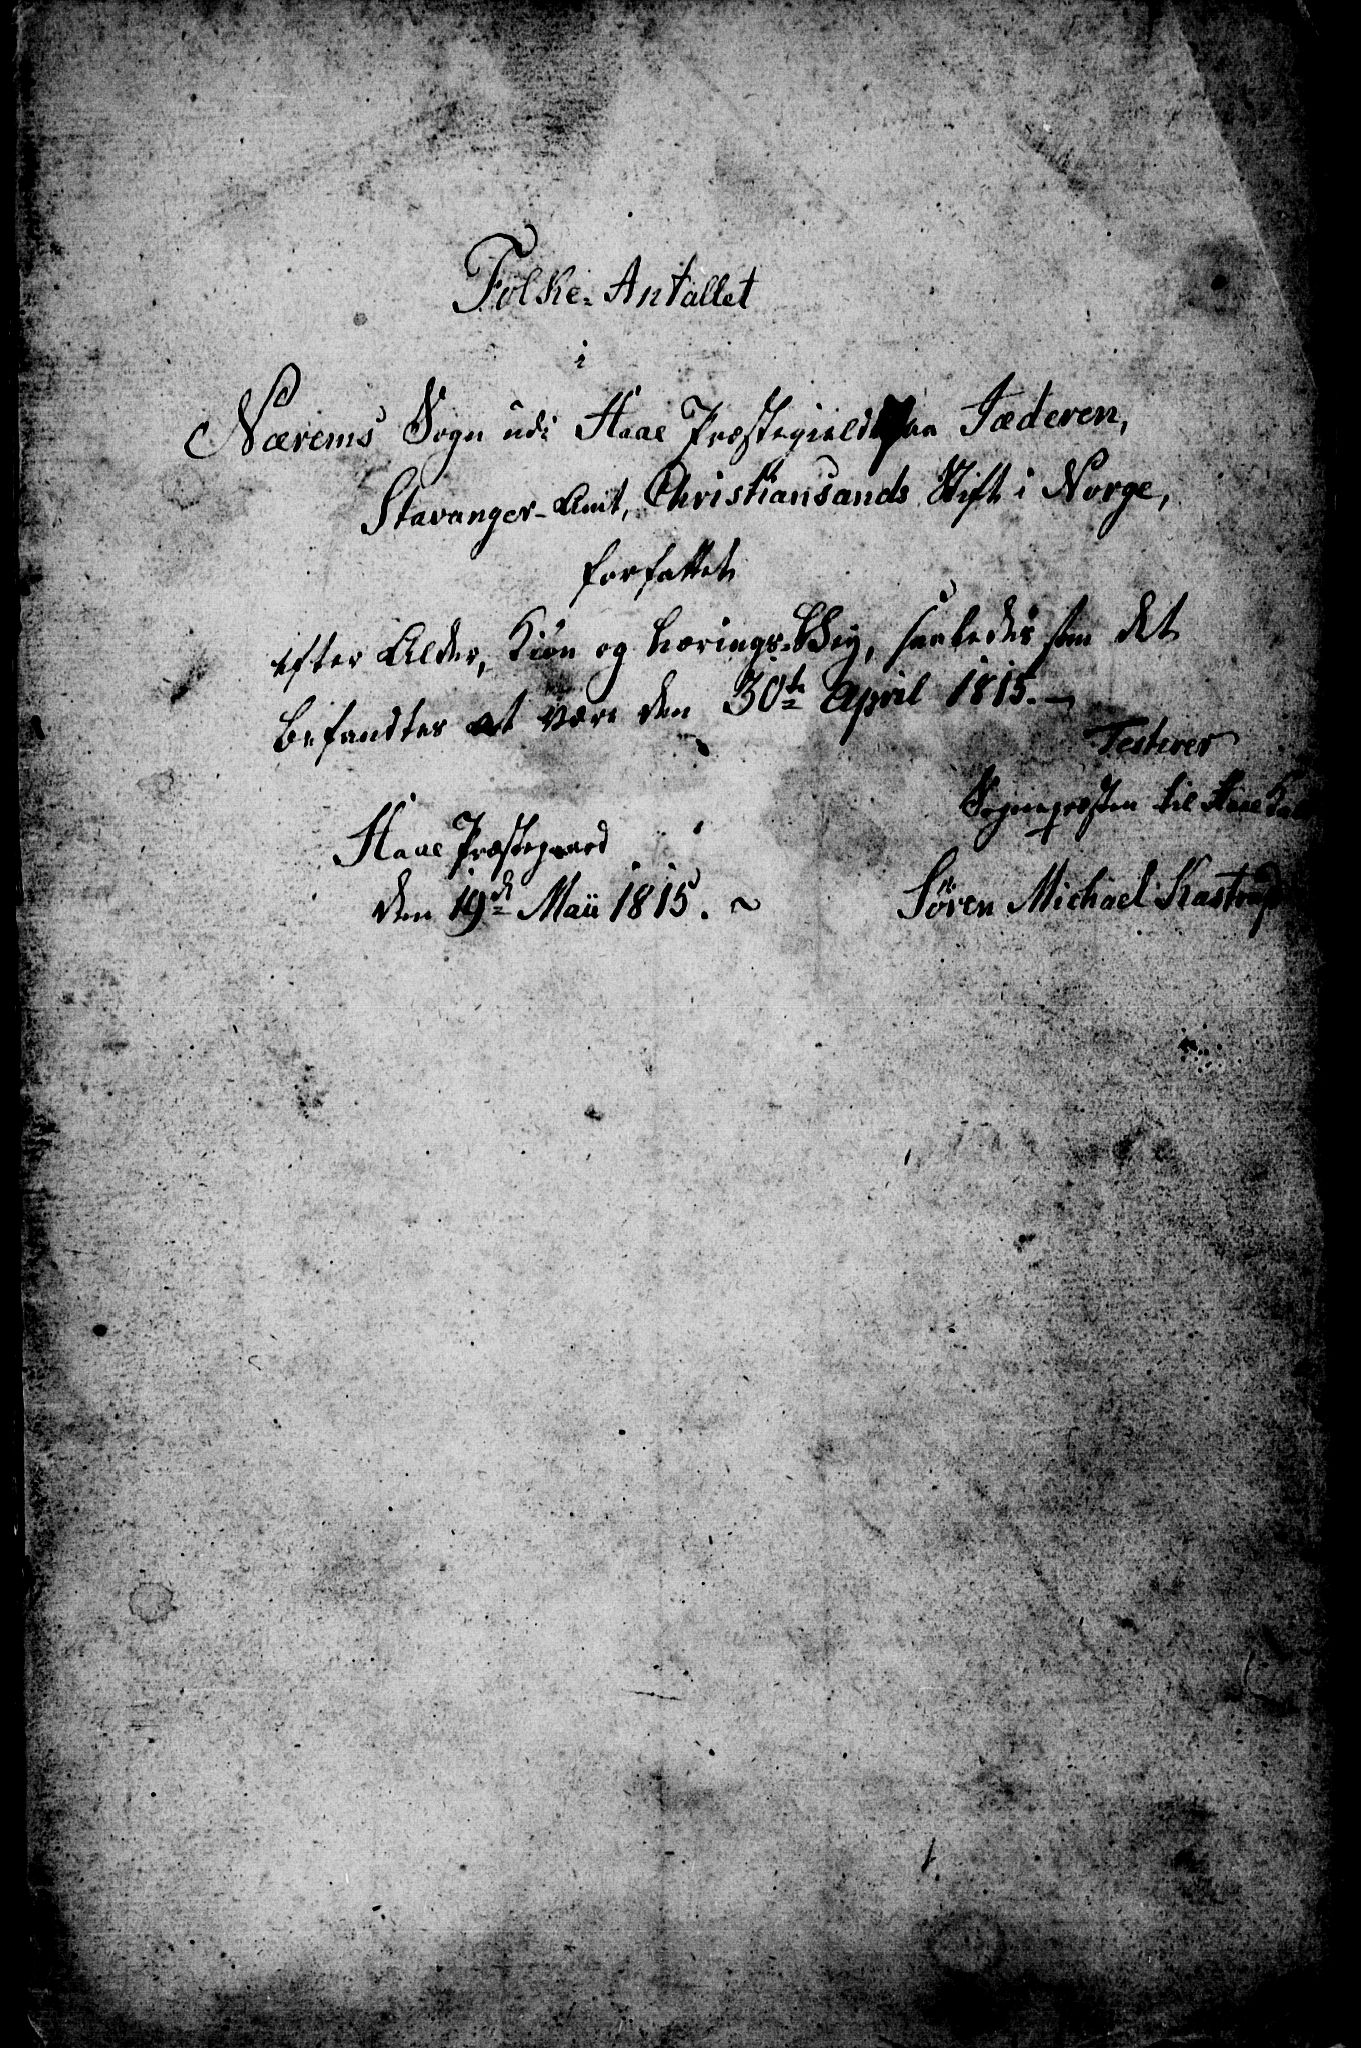 Folke-Antallet
i
Nærems Sogn udi Haae Præstegield paa Jæderen,
Stavanger-Amt, Christiansands Stift i Norge,
forfattet
efter Alder, Kiøn og Nærings-Vey, saaledes som det
befandtes at være den 30te April 1815.
Testerer
Haae Præstegaard
Sognepræsten til Haae
den 19de Maii 1815.
Sören Michael Kastrup